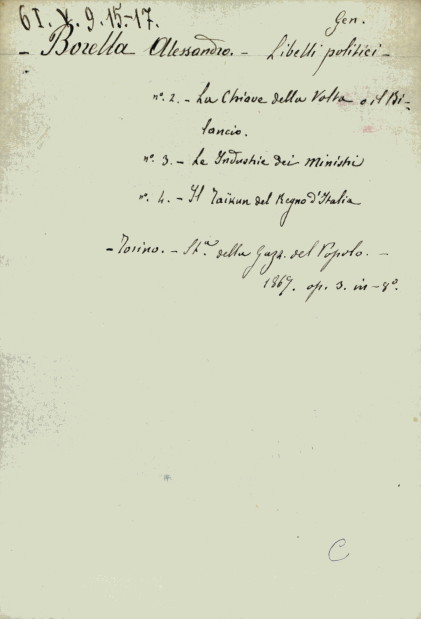 61. X. 9. 15-17.
Gen.
- Borella Alessandro. - Libelli politici -
n.º 2. - La Chiave della Volta o il Bi-
lancio.
n.º 3. - Le Industrie dei Ministri
n.º 4. - Il Taikun del Regno d'Italia
- Torino. - St.ª della Gazz. del Popolo. -
1867. op. 3. in-8º.
C